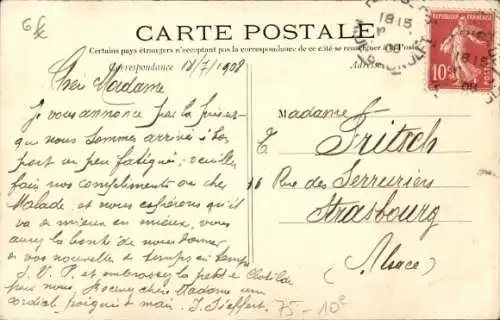 6f
CARTE POSTALE
Certains pays étrangers n'acceptent pas la correspondance de ce côté se renseigner à la Poste
Correspondance
12/7/1908
Adresse
Cher Madame
Je vous annonce par la prése-
que nous sommes arrivé à bon
port un peu fatigué, veuilles
fair nos compliments au cher
Malade, et nous espérons qu'il
va de mieux en mieux, vous
aurez la bonté de nous donner
de vos nouvelle de temps en temps
S. V. P. et embrassez la petite Clotilde
pour nous, Recevez cher Madame une
cordial poignée de main. J. Sieffert.
Madame
E Fritsch
16 Rue des Serruriers
Strasbourg
(Alsace)
REPUBLIQUE FRANÇAISE
10c
POSTES
18 15
08
18 15
08
75-10e